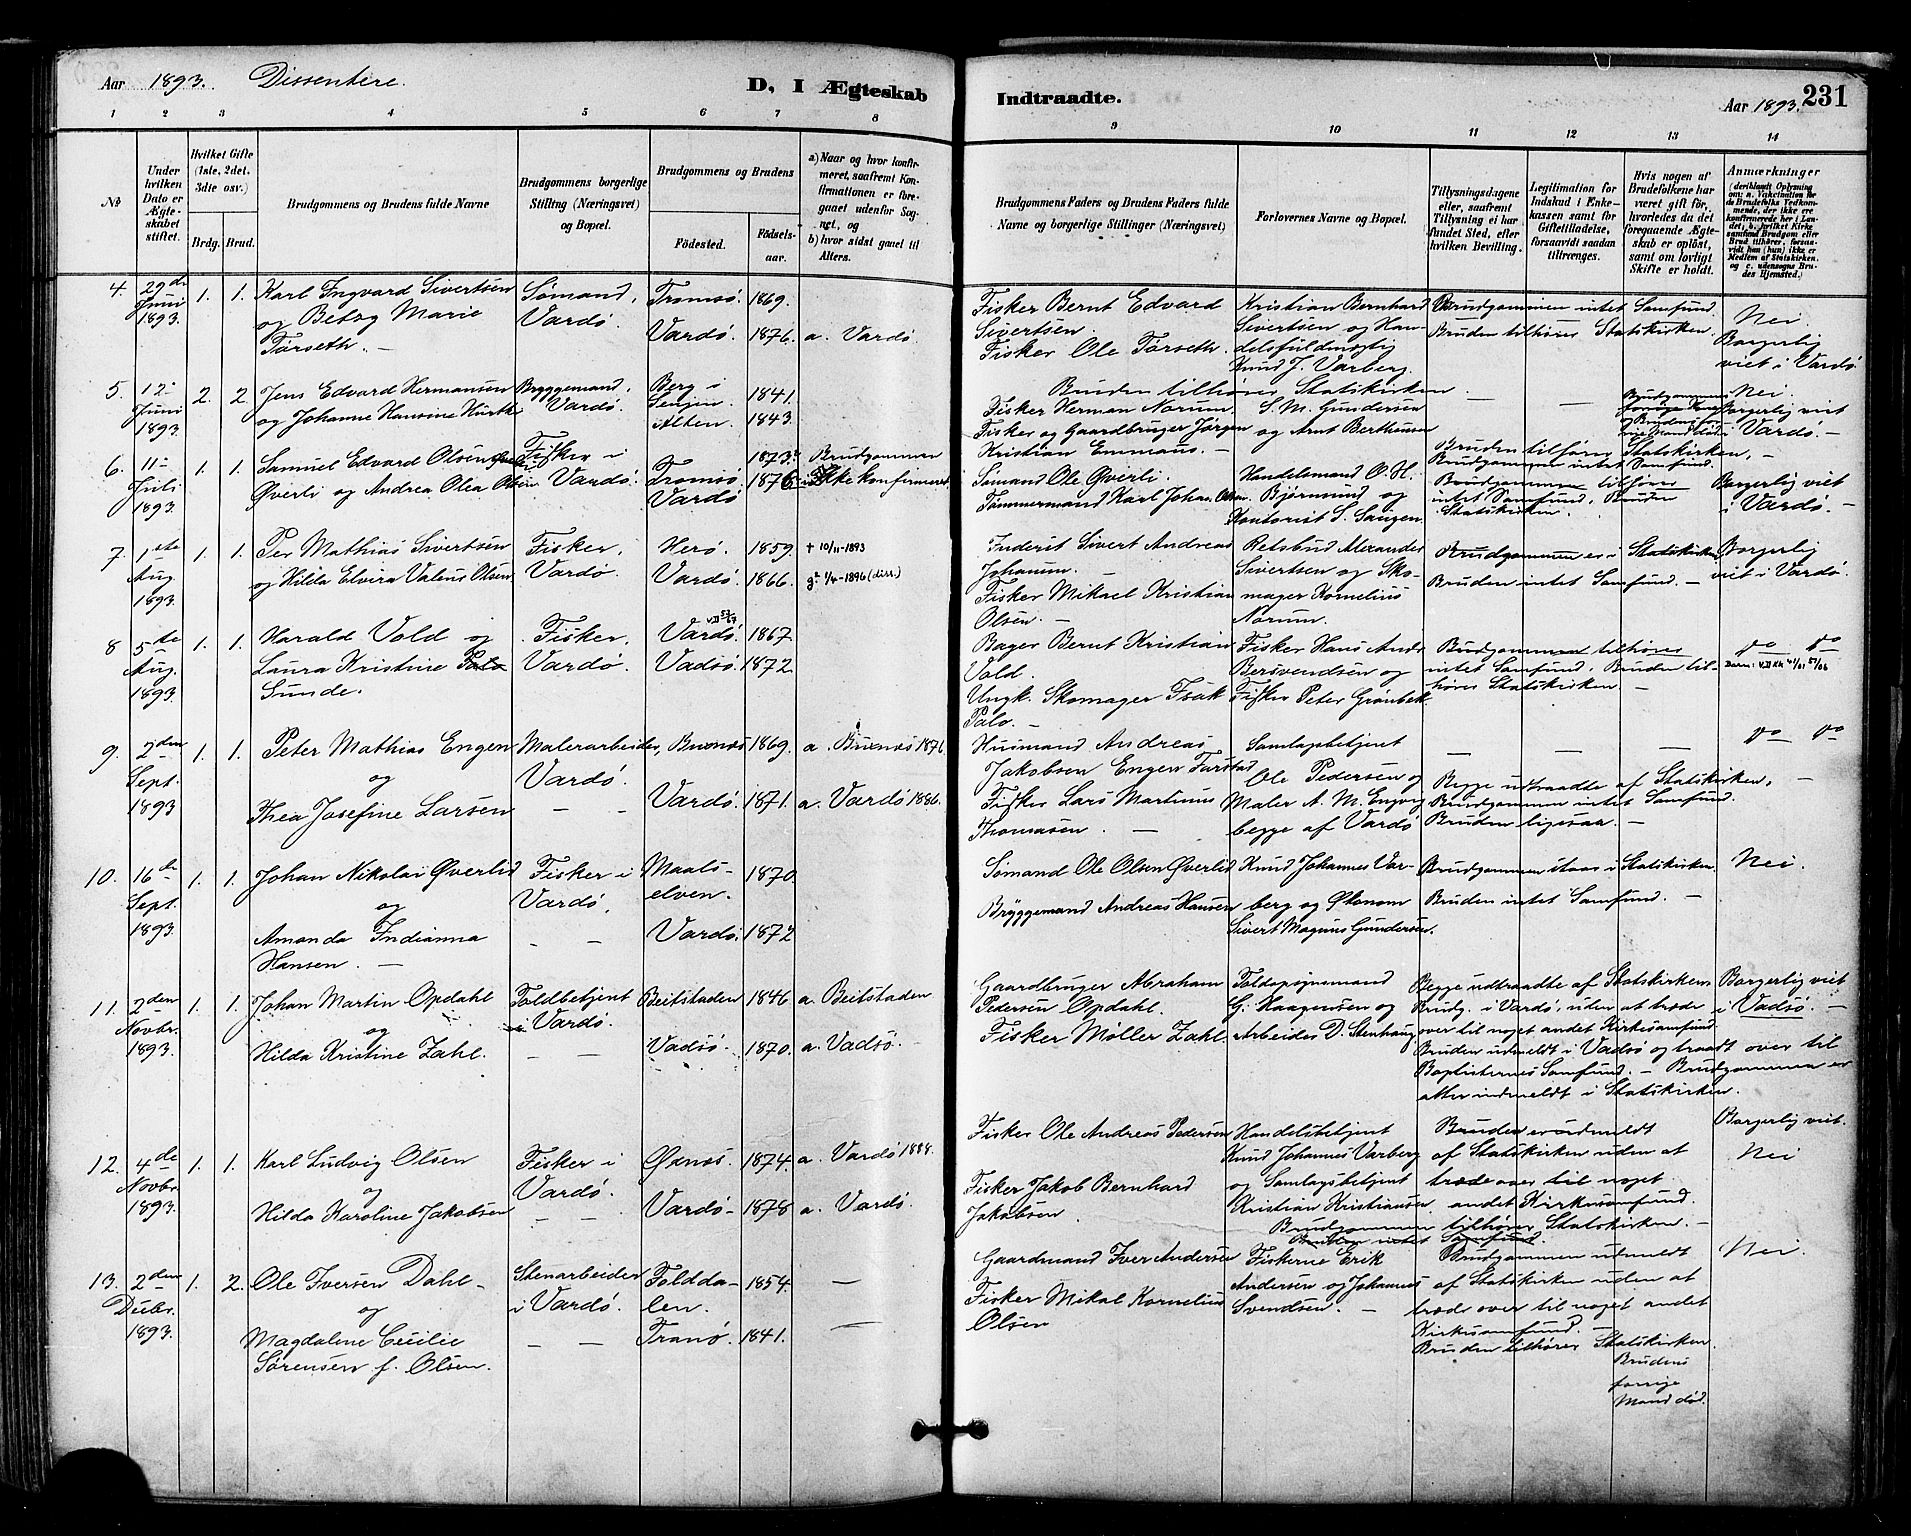 Aar 1893. Dissentere.
D, I Ægteskab
Indtraadte.
Aar 1893. 231
1 2 3 4 5 6 7 8 9 10 11 12 13 14
No
Under hvilken Dato er Ægteskabet stiftet.
Hvilket Gifte (1ste, 2det. 3dte osv.)
Brdg. Brud.
Brudgommens og Brudens fulde Navne
Brudgommens borgerlige Stilling (Næringsvei) og Bopæl.
Brudgommens og Brudens
Fødested. Fødselsaar.
a) Naar og hvor konfirmeret, saafremt Konfirmationen er foregaaet udenfor Sognet, og
b) hvor sidst gaaet til Alters.
Brudgommens Faders og Brudens Faders fulde Navne og borgerlige Stillinger (Næringsvei)
Forlovernes Navne og Bopæl.
Tillysningsdagene eller, saafremt Tillysning ei har fundet Sted, efter hvilken Bevilling.
Legitimation for Indskud i Enkekassen samt for Giftetilladelse, forsaavidt saadan tiltrænges.
Hvis nogen af Brudefolkene har været gift før, hvorledes da det foregaaende Ægteskab er opløst, samt om lovligt Skifte er holdt.
Anmærkninger
4. 29de Juni 1893. 1. 1. Karl Ingvard Sivertsen og Betsy Marie Tørseth. —
Sømand, Vardø.
Tromsø. 1869.
Vardø. 1876. a. Vardø.
Fisker Bernt Edvard Sivertsen.
Fisker Ole Tørseth.
Kristian Bernhard Sivertsen og Handelsfuldmægtig Knud J. Varberg.
Brudgommen intet Samfund.
Bruden tilhører Statskirken.
Nei
Borgerlig viet i Vardø
5. 12- Juni 1893 2. 2. Jens Edvard Hermansen og Johanne Hansine
Bryggemand, Vardø.
Berg i Senjen. 1841.
i Alten. 1843.
Bruden tilhører Statskirken
Fisker Herman Norum.
Fisker og Gaardbruger Jørgen Kristian Emmaus. —
S. M. Gundersen og Arnt Berthensen
Nei.
Borgerlig viet i Vardø. —
6. 11- Juli 1893 1. 1. Samuel Edvard Olsen Øverli og Andrea Olea Olsen
Fisker i Vardø.
Tromsø 1873.
Vardø 1876
Brudgommen Ikke konfirmeret
Sømand Ole Øverli.
Tømmermand Karl Johan Olsen.
Handelsmand O. H. Bjørnsund og Kontorist S. Saugen
Bruden tilhører Statskirken, —
Brudgommen intet Samfund.
Brudgommen tilhører intet Samfund. Bruder Statskirken.
Borgerlig viet i Vardø. —
7. 1ste Aug. 1893. 1. 1. Per Mathias Sivertsen og Hilda Elvira Valeus Olsen
Fisker, Vardø.
Herø. 1859. + 10/11-1893
Vardø. 1866. g. 1/4-1896 (diss.)
Inderst Sivert Andreas Johansen.
Fisker Mikael Kristian Olsen. —
Retsbud Alexander Sivertsen og Skomager Kornelius Norum.
Brudgommen er i Statskirken.
Bruden intet Samfund. —
Borgerlig viet i Vardø.
8 5te Aug. 1893 1. 1. Harald Vold og Laura Kristine Palo Sunde.
Fisker, Vardø.
Vardø. 1867.
Vadsø. 1872.
Bager Bernt Kristian Vold.
Ungk. Skomager Isak Palo. —
Fisker Hans Andr. Bersvendsen og Fisker Peter Grønbek
Brudgommen tilhører intet Samfund. Bruden tilhører Statskirken. —
do do
9. 2den Sept. 1893 1. 1. Peter Mathias Engen og Thea Josefine Larsen
Malerarbeider, Vardø.
Buxnæs 1869. a. Buxnæs 1876.
Vardø. 1871. a. Vardø 1886.
Husmand Andreas Jakobsen Engen Farstad
Fisker Lars Martinus Thomasen. —
Samlagsbetjent Ole Pedersen og Maler A. M. Engvig begge af Vardø
Begge udtraadte af Statskirken, —
Brudgommen intet Samfund.
Bruden ligesaa. —
do do
10. 16de Sept. 1893. 1. 1. Johan Nikolai Øverlid og Amanda Indianna Hansen. —
Fisker i Vardø.
Maalselven. 1870.
Vardø. 1872
Sømand Ole Olsen Øverlid
Bryggemand Andreas Hansen
Knud Johannes Varberg og Økonom Sivert Magnus Gundersen.
Brudgommen staar i Statskirken.
Bruden intet Samfund. —
Nei.
11. 2den Novbr. 1893 1. 1. Johan Martin Opdahl og Hilda Kristine Zahl.
Toldbetjent i Vardø.
Beitstaden 1846 a. Beitstaden
Vadsø. 1870. a. Vadsø.
Gaardbruger Abraham Pedersen Opdahl.
Fisker Møller Zahl.
Toldopsynsmand G. Haagensen og Arbeider D. Stenhaug
Begge udtraadte af Statskirken.
Brudg. i Vardø, uden at træde over til noget andet Kirkesamfund.
Bruden udmeldt i Vadsø og traadt over til Baptisternes Samfund. — Brudgommen er atter indmeldt i Statskirken.
Borgerlig viet i Vadsø. —
12. 4de Novbr. 1893. 1. 1. Karl Ludvig Olsen og Hilda Karoline Jakobsen
Fisker i Vardø.
Øxnes. 1874. a. Vardø 1888.
Vardø- 1878 a. Vardø.
Fisker Ole Andreas Pedersen
Fisker Jakob Bernhard Jakobsen
Handelsbetjent Knud Johannes Varberg og Samlagsbetjent Kristian Kristiansen.
Bruden er udmeldt af Statskirken uden at træde over til noget andet Kirkesamfund.
Brudgommen tilhører Statskirken. —
Bruden intet Samfund.
Borgerlig viet.
Nei
13. 2den Decbr. 1893. 1. 2. Ole Iversen Dahl- og Magdalene Cecilie Sørensen f. Olsen.
Stenarbeider i Vardø.
Folddalen. 1854. —
Tranø. 1841. —
Gaardmand Iver Andersen
Fisker Mikal Kornelius Olsen
Fiskerne Erik Andersen og Johannes Svendsen. —
Brudgommen udmeldt af Statskirken uden at træde over til noget andet Kirkesamfund. —
Bruden tilhører Statskirken
Brudens forrige Mand død.
Nei.